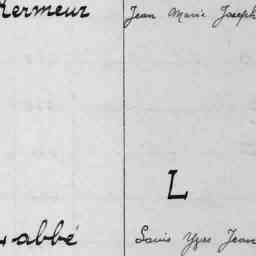 Kermeur Jean Marie Joseph
L
Labbé Louis Yves Jean